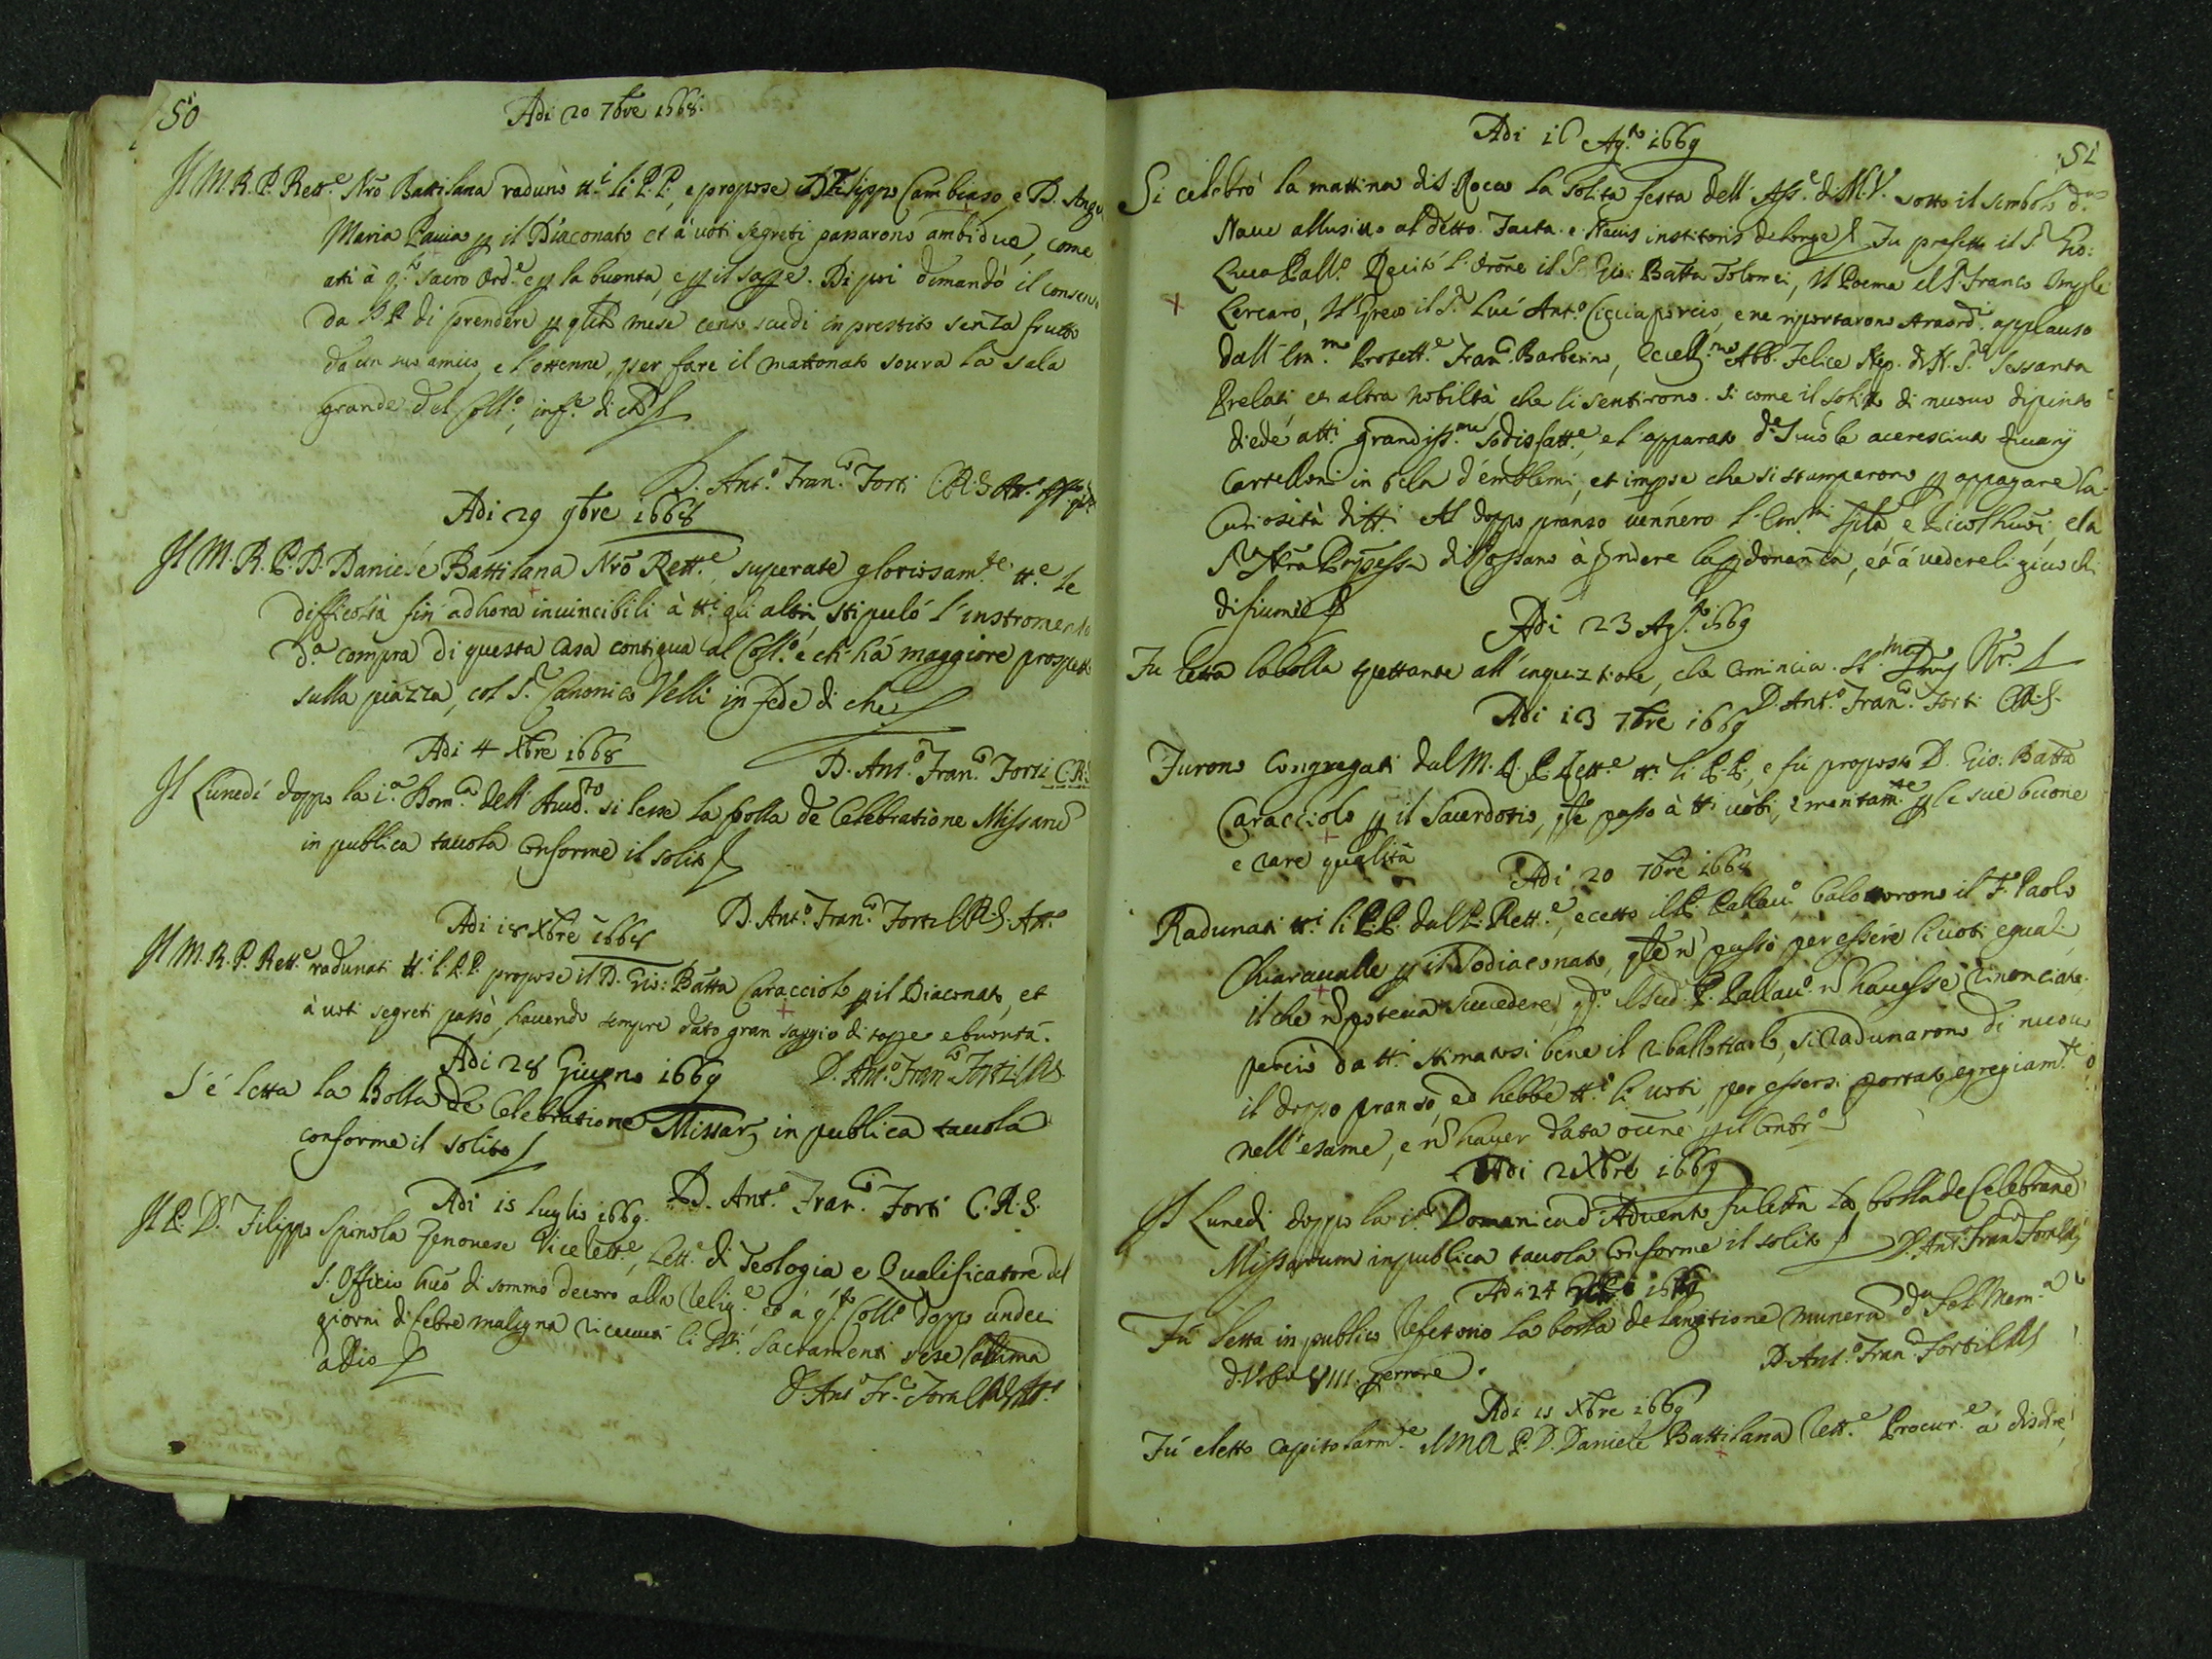 50
Adi 20 7bre 1668.
Il M.R.P. Rett.e Nr̃o Battilana radunò tt.i li P.P., e propose D. Filippo Cambiaso, e D. Ange
Maria Pauia p il Diaconato et à uoti segreti passarono ambidue, come
atti à q.to sacro Ord.e e p la buontà, e p il sapge. Di poi dimandò il consen
da P.P. di prendere p qlch mese cento scudi in prestito senza frutto
da un suo amico, e l'ottenne, per fare il mattonato soura la sala
grande del Coll.o, in fe di ch
D. Ant.o Fran.co Forti C.R.S. Att.
Adi 29 9bre 1668
Il M.R.P.D. Daniele Battilana Nr̃o Rett.e, superate gloriosam.te tt.e le
difficoltà fin' adhora inuincibili à tt.i gli altri, stipulò l'instromento
d.a compra di questa casa contigua al Coll.o, e ch' hà maggiore prospett
sulla piazza, col S.r Canonico Velli in fede di che
D. Ant.o Fran.co Forti C.R.S.
Adi 4 Xbre 1668
Il Lunedì doppo la 1.a Dom.ca dell' Auu.to si lesse la bolla de Celebratione Missarũ
in publica tauola conforme il solito
D. Ant.o Fran.co Forti C.R.S. Att.o
Adi 18 Xbre 1668
Il M.R.P. Rett.e radunati tt.i li P.P. propose il D. Gio: Batta Caracciolo p il Diaconato, et
à uoti segreti passò, hauendo sempre dato gran saggio di sapge e buontà.
D. Ant.o Fran.co Forti C.R.S.
Adi 28 Giugno 1669
S'è letta la Bolla de Celebratione Missar in publica tauola
conforme il solito
D. Ant.o Fran.co Forti C.R.S.
Adi 15 Luglio 1669.
Il P. D. Filippo Spinola Genouese Vicerett.e, Lett.e di Teologia e Qualificatore del
S. Officio huo di sommo decoro alla Relig.e et à q.to Coll.o doppo undeci
giorni di febre maligna riceuuti li SS.mi Sacramenti rese l'anima
a Dio
D. Ant.o Fr.co Forti C.R.S. Att.o
51
Adi 16 Ag.to 1669
Si celebrò la mattina di S. Rocco la solita festa dell' Ass.e di M.V. sotto il simbolo d.a
Naue allusiuo al detto. Facta e Nauis institoris de longe. Fu prefetto il S.r Gio:
Luca Pall.o Recitò l' Orõne il S. Gio: Batta Tolomei, Il Poema il S.r Franco
Cercaro, Il Greco il S.r Lui Ant.o Cicciaporcio, e ne riportarono straord.i applauso
dall' Em.mo Protett.e Fran.co Barberino, Abb. Felice Nep. di N.S.re Sessanta
Prelati, et altra nobiltà che li sentirono. Si come il solito di nuouo dipinto
diede à tt.i grandiss.me sodisfatt.e, e l'apparato d. Scuola accresciuta di uarij
Cartelloni in tela d' emblemi, et imprse che si stamparono p appagare la
curiosità di tt.i. Al doppo pranso uennero l' Em.mi e la
Principessa di Rossano à prndere la pdonanza, et à uedere li giuochi
di fiume
Adi 23 Ag.to 1669
Fu letta la bolla spettante all' inquiz.tione, che comincia.
D. Ant.o Fran.co Forti C.R.S.
Adi 13 7bre 1669
Furono congregati dal M.R.P. Rett.e tt.i li P.P., e fù proposto D. Gio: Batta
Caracciolo p il Sacerdotio, qle passò à tt.i uoti, e meritam.te p le sue buone
e rare qualità
Adi 20 7bre 1668
Radunati tt.i li P.P. dal P. Rett.e, ecetto il P. Pallau.o balottorono il F. Paolo
Chiaraualle p il Sodiaconato, qle ñ passò per essere li uoti eguali,
il che ñ poteua succedere, qdo il sud. P. Pallau.o ñ hauesse rinonciato.
perciò da tt.i stimatosi bene il riballottarlo, si radunarono di nuouo
il doppo pranso, ed hebbe tt.i li uoti, per essersi portato egregiam.te
nell' esame, e ñ hauer data occ.ne p il Contr.o
Adi 2 Xbre 1669
Il Lunedì doppo la 1.a Domenica d' Aduento fu letta la bolla de Celebrane
Missarum in publica tauola conforme il solito
D. Ant. Fran.co Forti C.R.S.
Adi 24 1669
Fu letta in publico refetorio la bolla de largitione munerũ d.a Fel. Mem.a
d' Urb.o VIII.
D. Ant.o Fran.co Forti C.R.S.
Adi 15 Xbre 1669
Fù eletto capitolarm.te il M.R.P.D. Daniele Battilana Rett.e Procur.e à